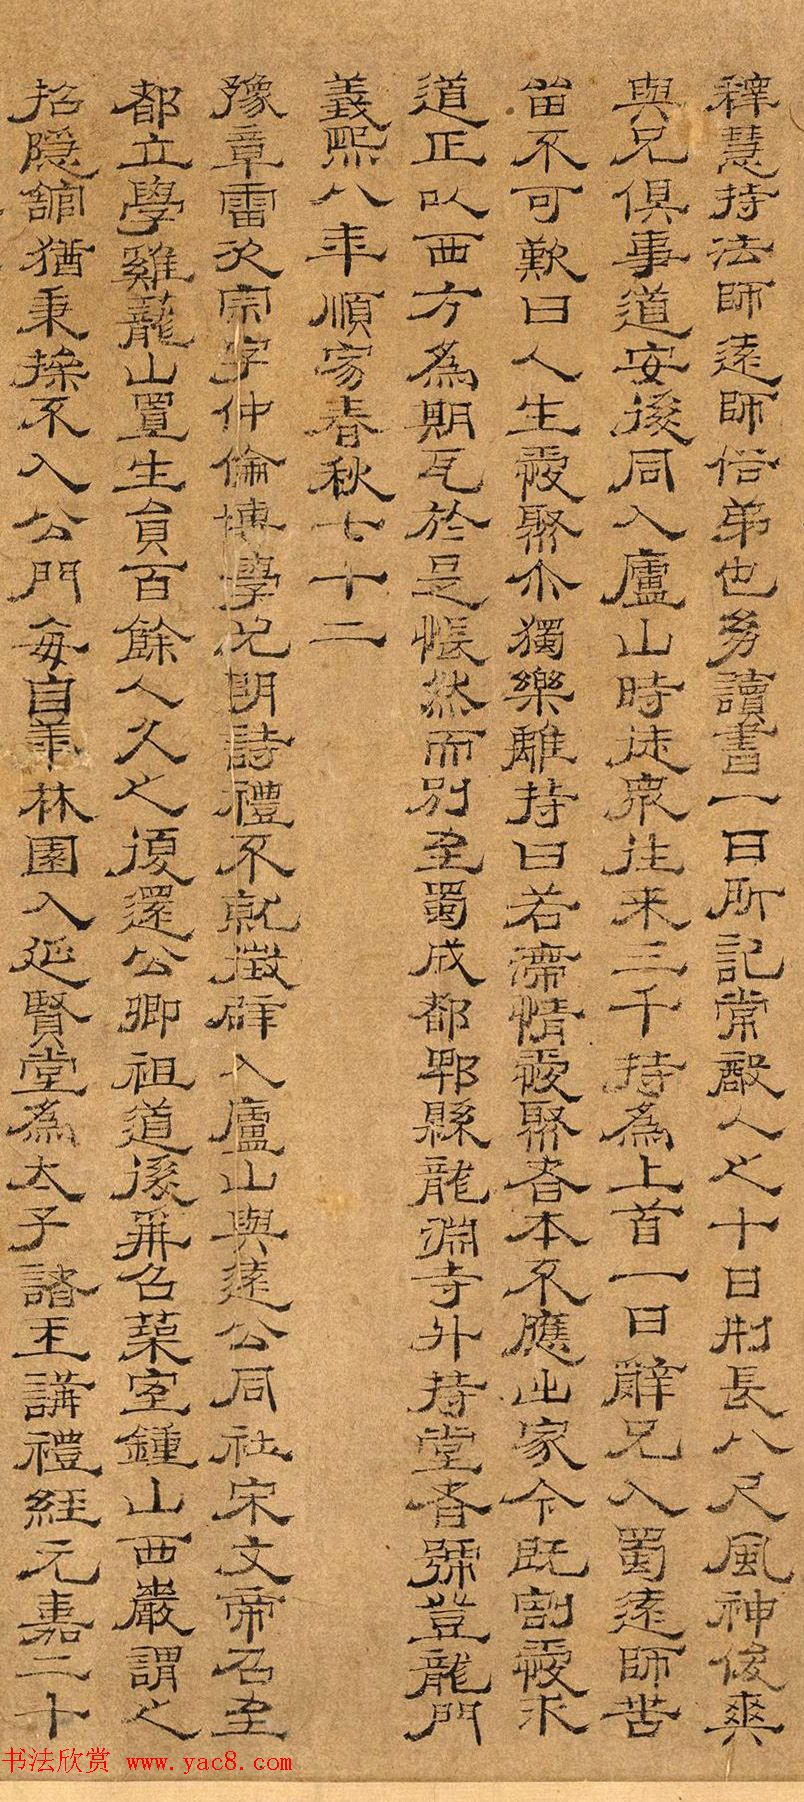 釋慧持法師遠師俗弟也多讀書一日所記常敵人之十日形長八尺風神俊爽
與兄俱事道安後同入廬山時徒衆往来三千持為上首一日辭兄入蜀遠師苦
留不可歎曰人生愛聚尒獨樂離持曰若滯情愛聚者本不應出家今既割愛求
道正以西方為期瓦於是悵然而別至蜀成都郫縣龍淵寺升持堂者號登龍門
義熙八年順寂春秋七十二
豫章雷次宗字仲倫博學明詩禮不就徵辟入廬山與遠公同社宋文帝召至
都立學雞蘢山置生員百餘人久之復還公卿祖道後再召築室鍾山西巖謂之
招隱館猶秉操不入公門每自華林園入延賢堂為太子諸王講禮経元嘉二十
书法欣赏 www.yac8.com